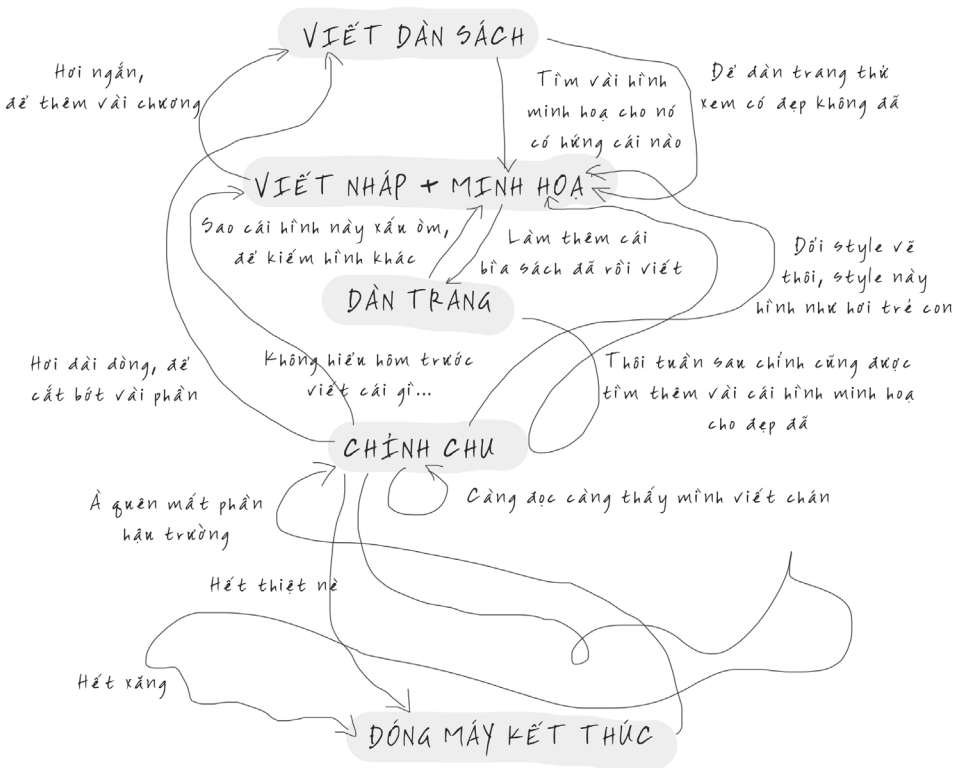 VIẾT DÀN SÁCH
Hơi ngắn,
để thêm vài chương
Tìm vài hình
minh hoạ cho nó
có hứng cái nào
Để dàn trang thử
xem có đẹp không đã
VIẾT NHÁP + MINH HOẠ
Sao cái hình này xấu òm,
để kiếm hình khác
Làm thêm cái
bìa sách đã rồi viết
Đổi style vẽ
thôi, style này
hình như hơi trẻ con
DÀN TRANG
Hơi dài dòng, để
cắt bớt vài phần
Không hiểu hôm trước
viết cái gì...
Thôi tuần sau chỉnh cũng được
tìm thêm vài cái hình minh hoạ
cho đẹp đã
CHỈNH CHU
À quên mất phần
hậu trường
Càng đọc càng thấy mình viết chán
Hết thiệt nè
Hết xăng
ĐÓNG MÁY KẾT THÚC